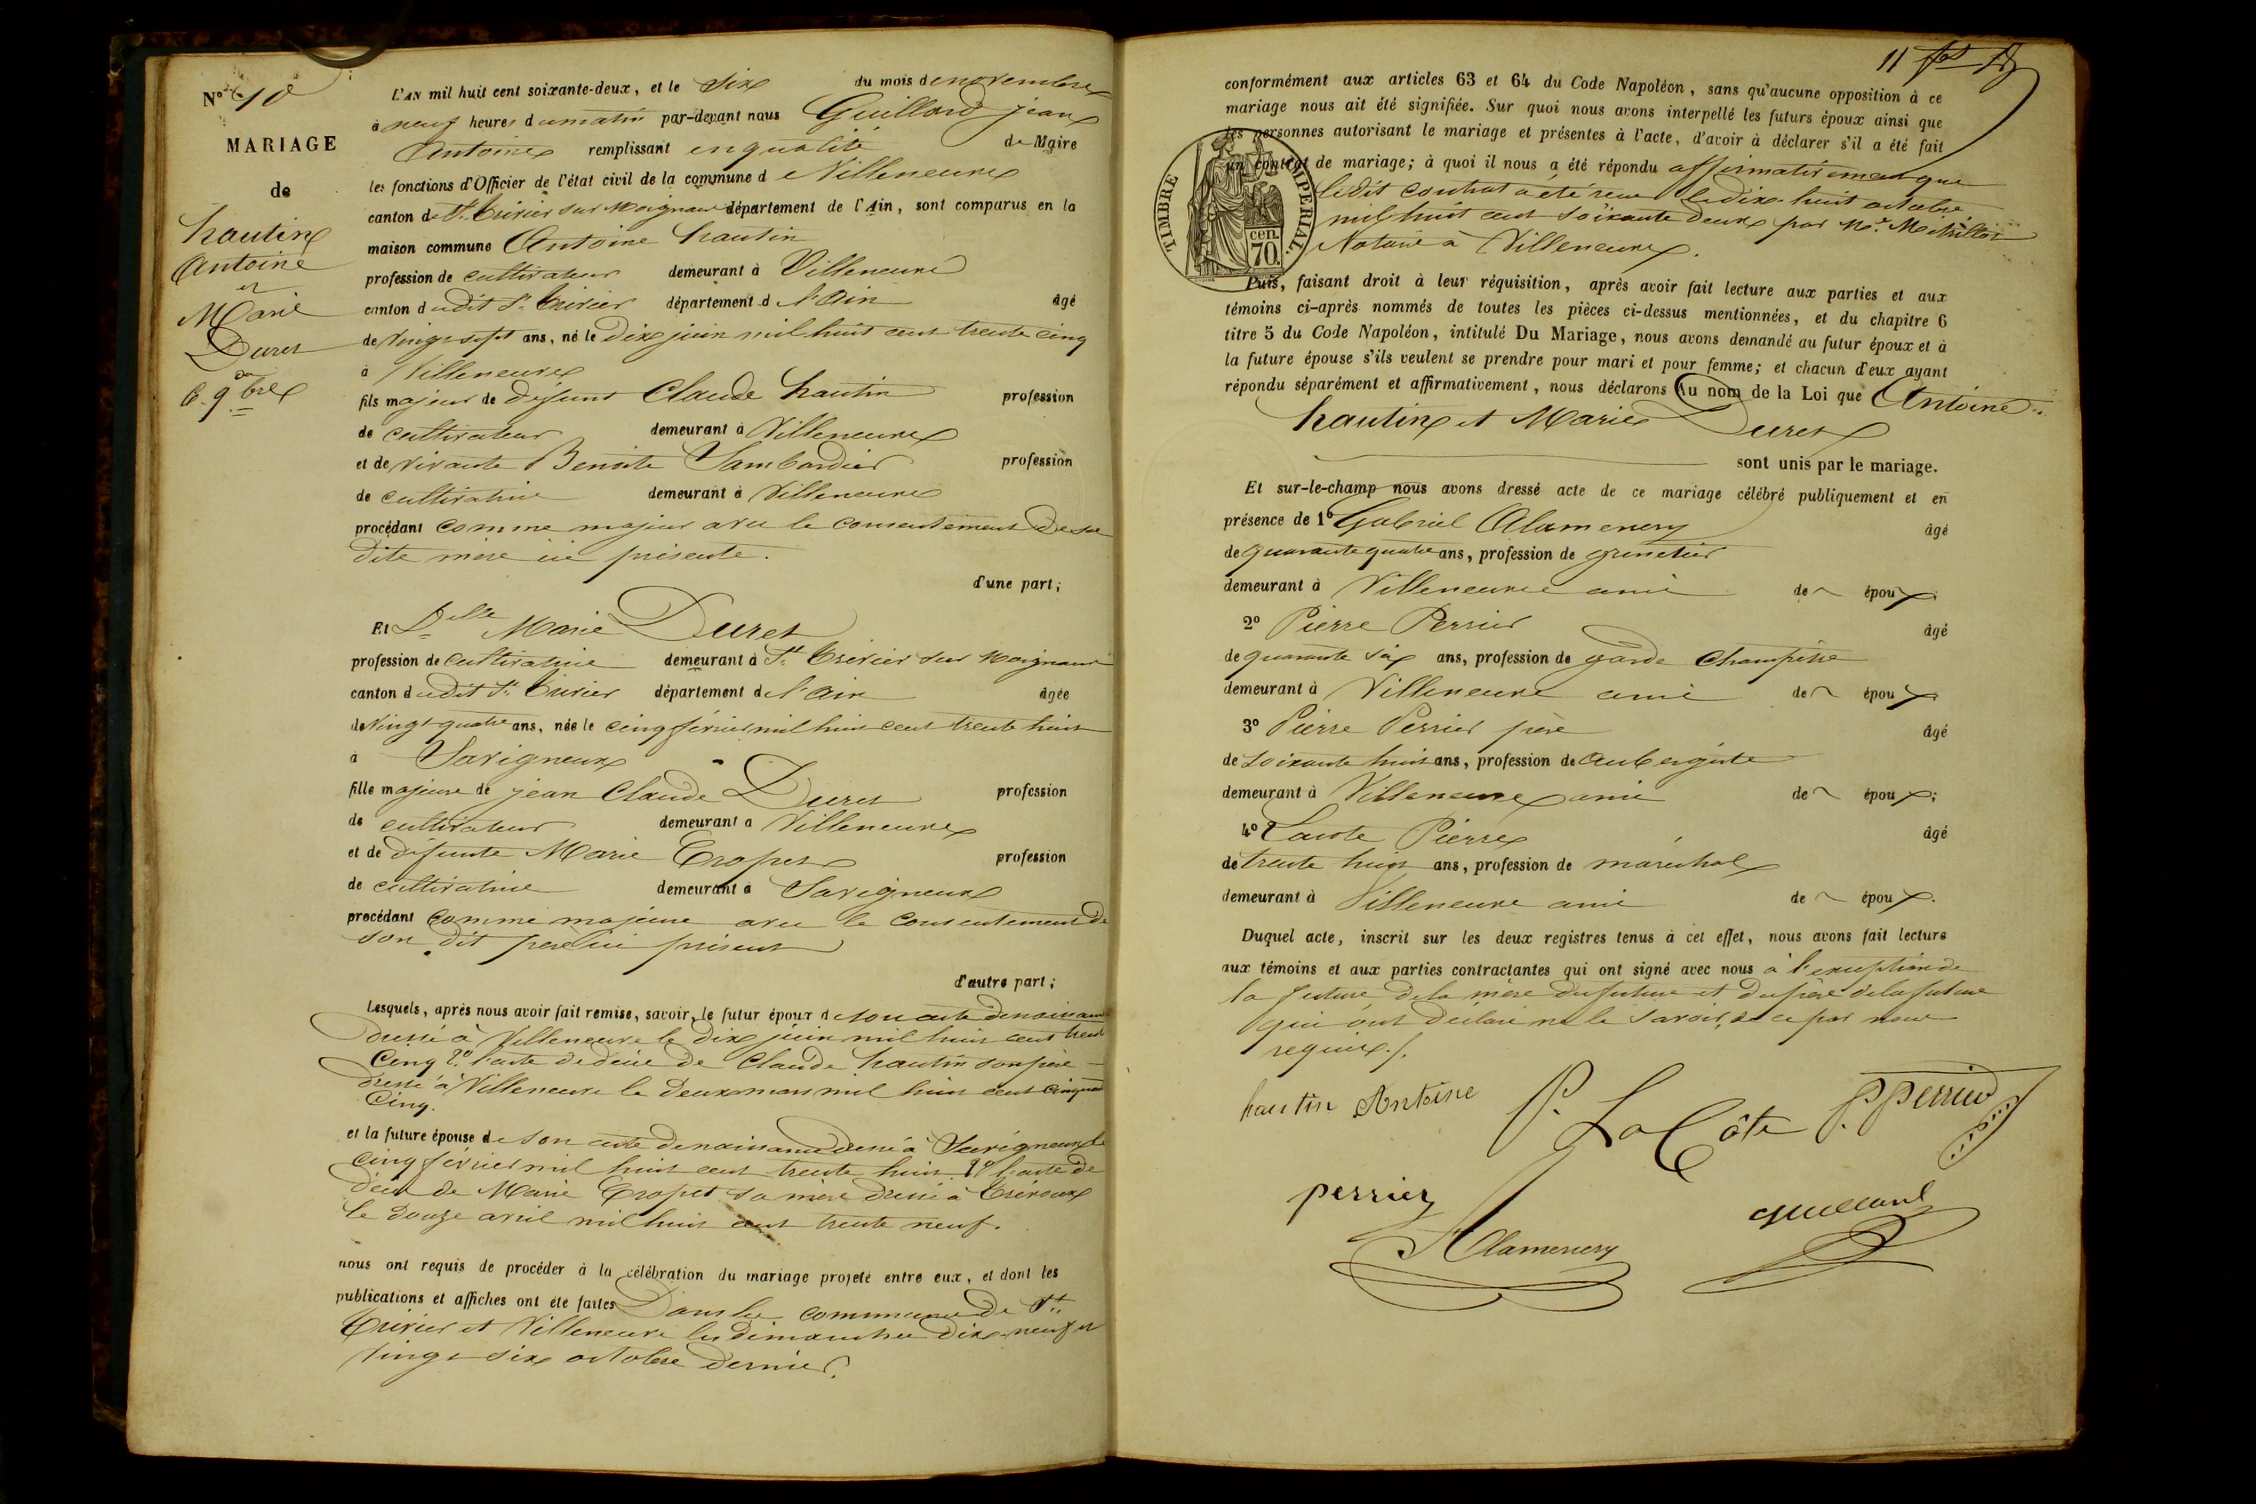 N° 10
MARIAGE
de
hautin
Antoine
et
Marie
Duret
6. 9bre
L'AN mil huit cent soixante-deux, et le Six du mois de novembre
à neuf heures du matin par-devant nous Guillard jean
Antoine remplissant en qualité de Maire
les fonctions d'Officier de l'état civil de la commune de Villeneuve
canton de St. Trivier sur Moignans département de l'Ain, sont comparus en la
maison commune Antoine hautin
profession de cultivateur demeurant à Villeneuve
canton dudit St. Trivier département de l'Ain âgé
de vingt sept ans, né le Dix juin mil huit cent trente cinq
à Villeneuve
fils majeur de défunt Claude hautin profession
de cultivateur demeurant à Villeneuve
et de vivante Benoite Lambardier profession
de cultivatrice demeurant à Villeneuve
procédant comme majeur avec le consentement de sa
dite mère ici présente.
d'une part;
Et Delle Marie Duret
profession de cultivatrice demeurant à St. Trivier sur Moignans
canton dudit St. Trivier département de l'Ain âgée
de vingt quatre ans, née le cinq février mil huit cent trente huit
à Savigneux
fille majeure de jean Claude Duret profession
de cultivateur demeurant à Villeneuve
et de défunte Marie Cropet profession
de cultivatrice demeurant à Savigneux
procédant comme majeure avec le consentement de
son dit père ici présent
d'autre part;
Lesquels, après nous avoir fait remise, savoir, le futur époux de son acte de naissance
dressé à Villeneuve le dix juin mil huit cent trente
cinq 2° l'acte de décès de Claude hautin son père
dressé à Villeneuve le deux mars mil huit cent cinquante
cinq.
et la future épouse de son acte de naissance dressé à Savigneux le
cinq février mil huit cent trente huit 2° l'acte de
décès de Marie Cropet sa mère dressé à Trévoux
le douze avril mil huit cent trente neuf.
nous ont requis de procéder à la célébration du mariage projeté entre eux, et dont les
publications et affiches ont été faites Dans les communes de St.
Trivier et Villeneuve les dimanches dix-neuf et
vingt six octobre dernier.
11
conformément aux articles 63 et 64 du Code Napoléon, sans qu'aucune opposition à ce
mariage nous ait été signifiée. Sur quoi nous avons interpellé les futurs époux ainsi que
les personnes autorisant le mariage et présentes à l'acte, d'avoir à déclarer s'il a été fait
un contrat de mariage; à quoi il nous a été répondu affirmativement que
ledit contrat a été reçu le dix huit octobre
mil huit cent soixante deux par Me.
Notaire à Villeneuve.
TIMBRE IMPERIAL.
cen.
70.
Puis, faisant droit à leur réquisition, après avoir fait lecture aux parties et aux
témoins ci-après nommés de toutes les pièces ci-dessus mentionnées, et du chapitre 6
titre 5 du Code Napoléon, intitulé Du Mariage, nous avons demandé au futur époux et à
la future épouse s'ils veulent se prendre pour mari et pour femme; et chacun d'eux ayant
répondu séparément et affirmativement, nous déclarons Au nom de la Loi que Antoine
hautin et Marie Duret
sont unis par le mariage.
Et sur-le-champ nous avons dressé acte de ce mariage célébré publiquement et en
présence de 1° Gabriel Alamenery âgé
de quarante quatre ans, profession de grenetier
demeurant à Villeneuve ami de époux;
2° Pierre Perrier âgé
de quarante six ans, profession de garde champêtre
demeurant à Villeneuve ami de époux;
3° Pierre Perrier père âgé
de soixante huit ans, profession de aubergiste
demeurant à Villeneuve ami de époux;
4° Lacote Pierre âgé
de trente huit ans, profession de maréchal
demeurant à Villeneuve ami de époux.
Duquel acte, inscrit sur les deux registres tenus à cet effet, nous avons fait lecture
aux témoins et aux parties contractantes qui ont signé avec nous à l'exception de
la future, de la mère du futur et du père de la future
qui ont déclaré ne le savoir, de ce par nous
requis./.
hautin Antoine P. La Côte P. Perrier
perrier Alamenery guillard